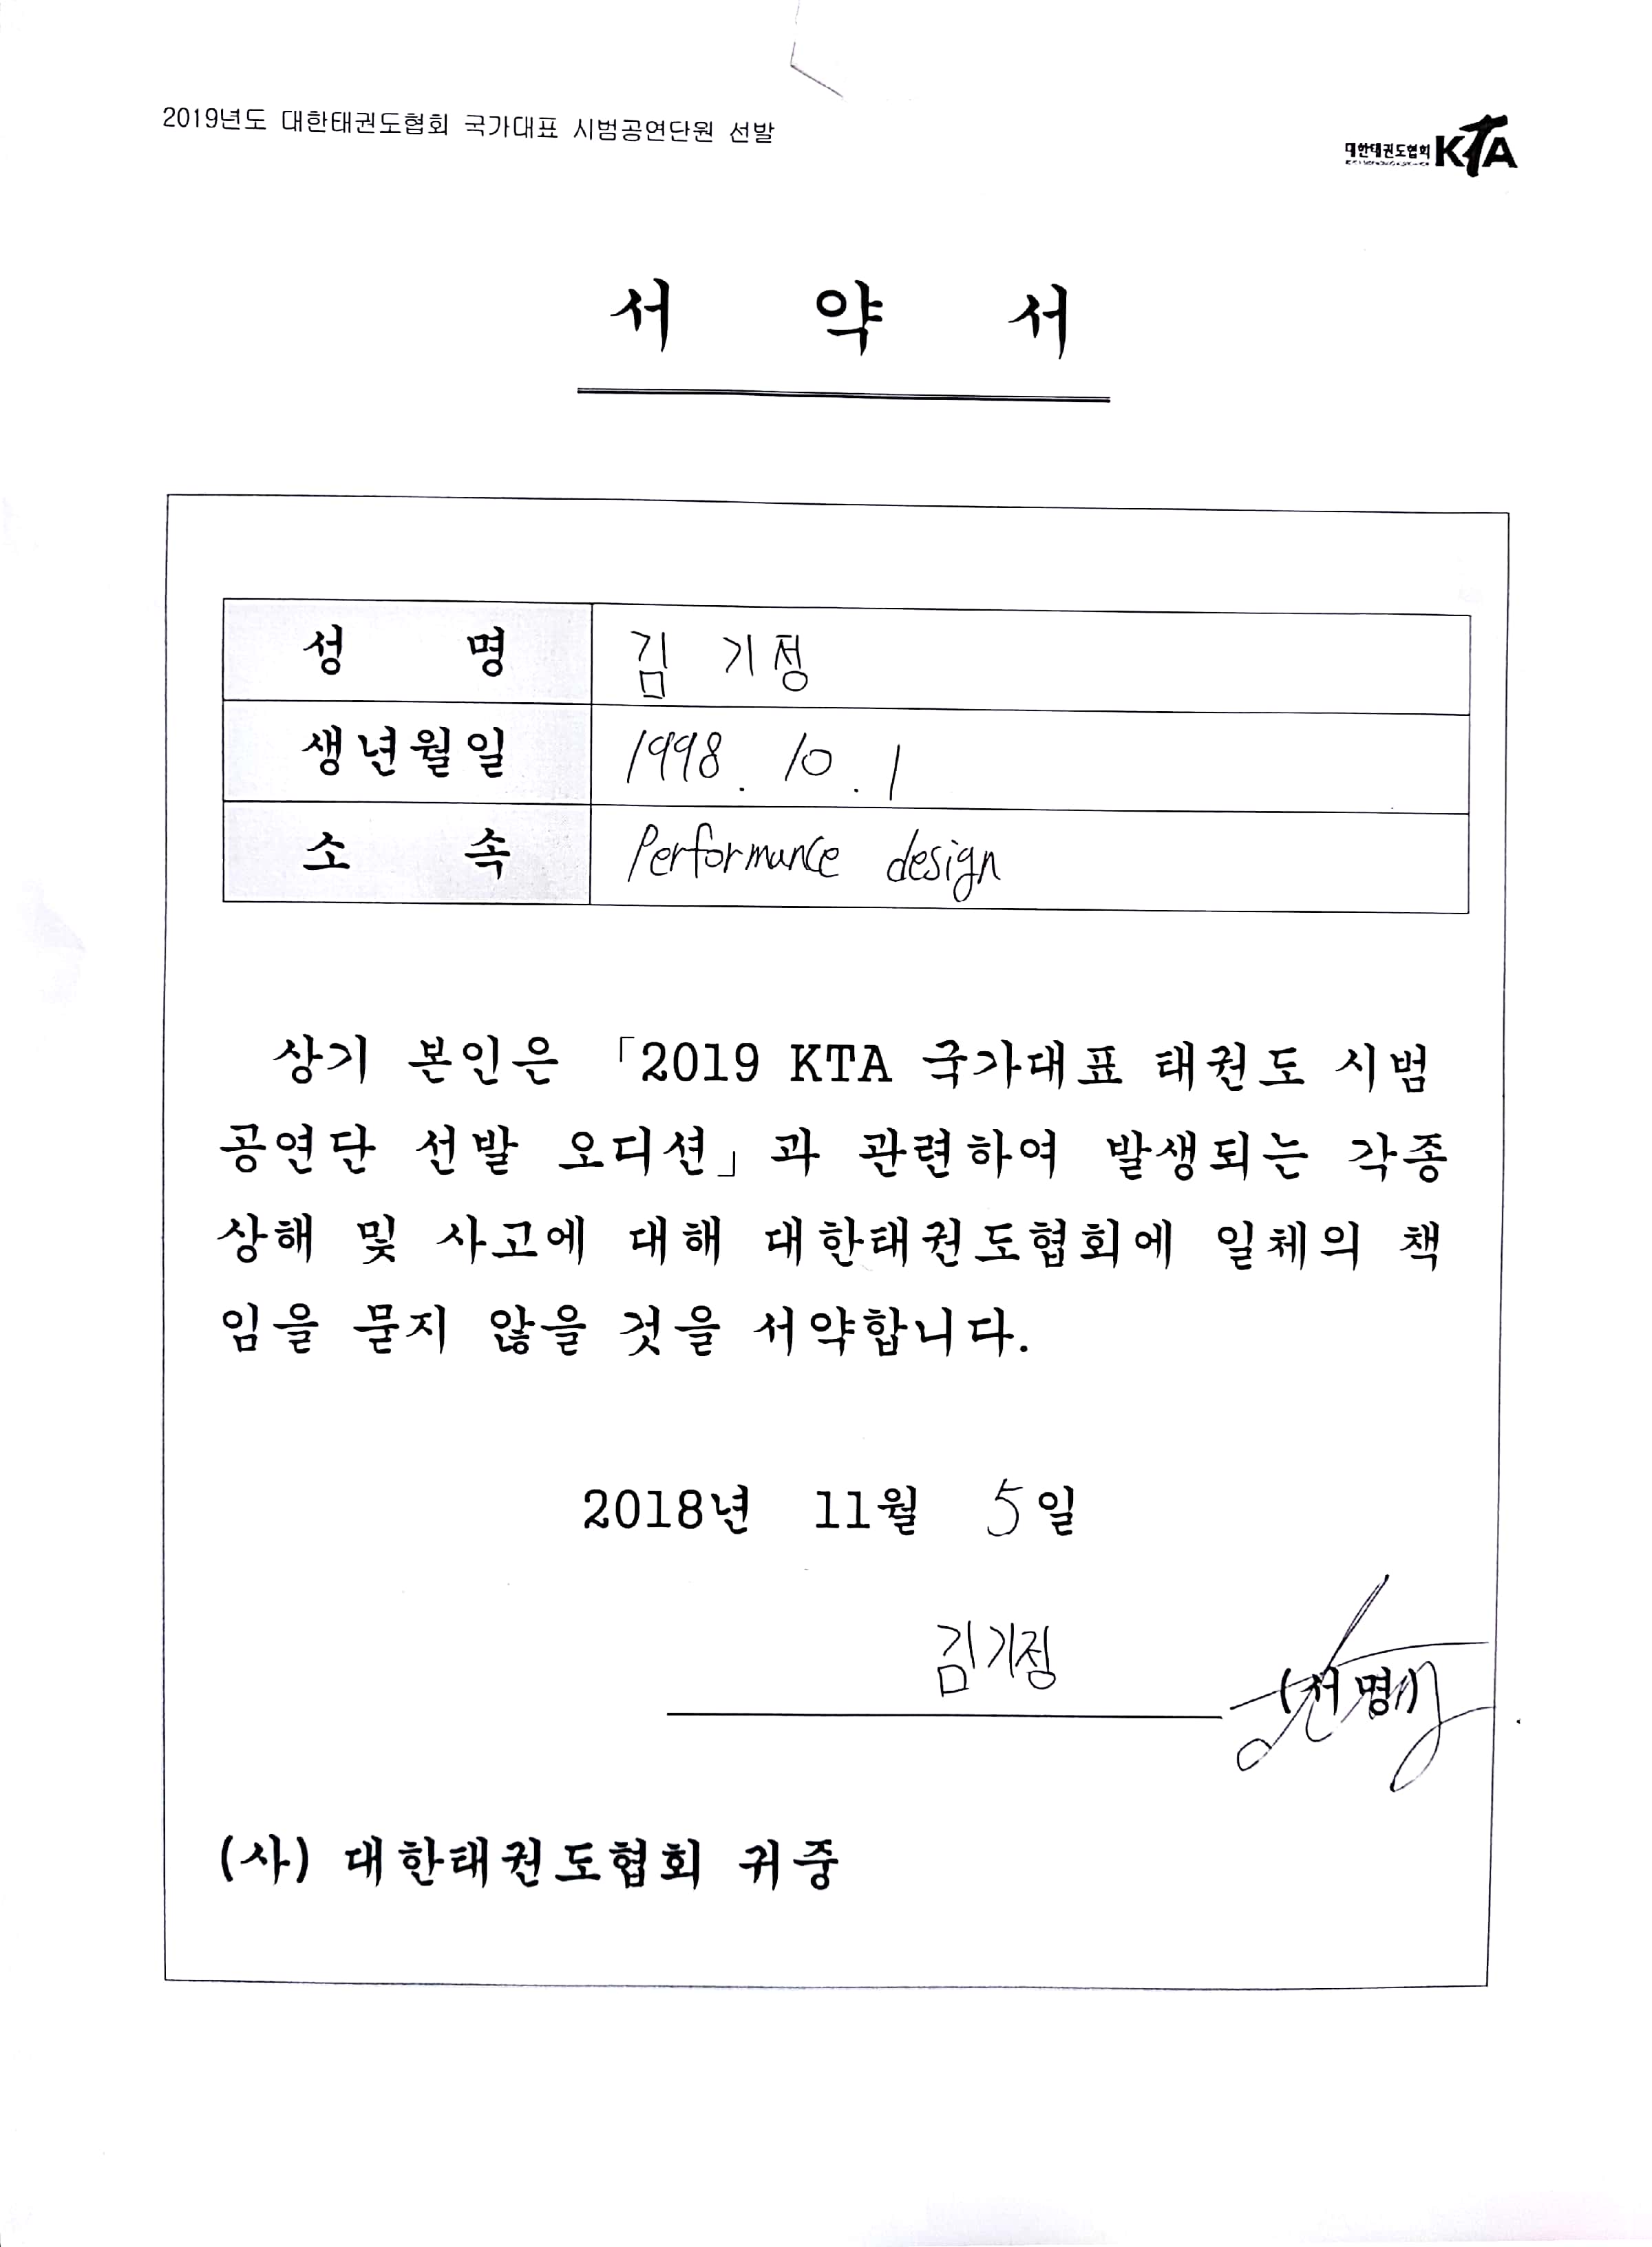 2019년도 대한태권도협회 국가대표 시범공연단원 선발
대한태권도협회 KTA
서 약 서
성 명 김 기정
생년월일 1998. 10. 1
소 속 Performance design
상기 본인은 「2019 KTA 국가대표 태권도 시범
공연단 선발 오디션」과 관련하여 발생되는 각종
상해 및 사고에 대해 대한태권도협회에 일체의 책
임을 묻지 않을 것을 서약합니다.
2018년 11월 5일
김기정 (서명)
(사) 대한태권도협회 귀중